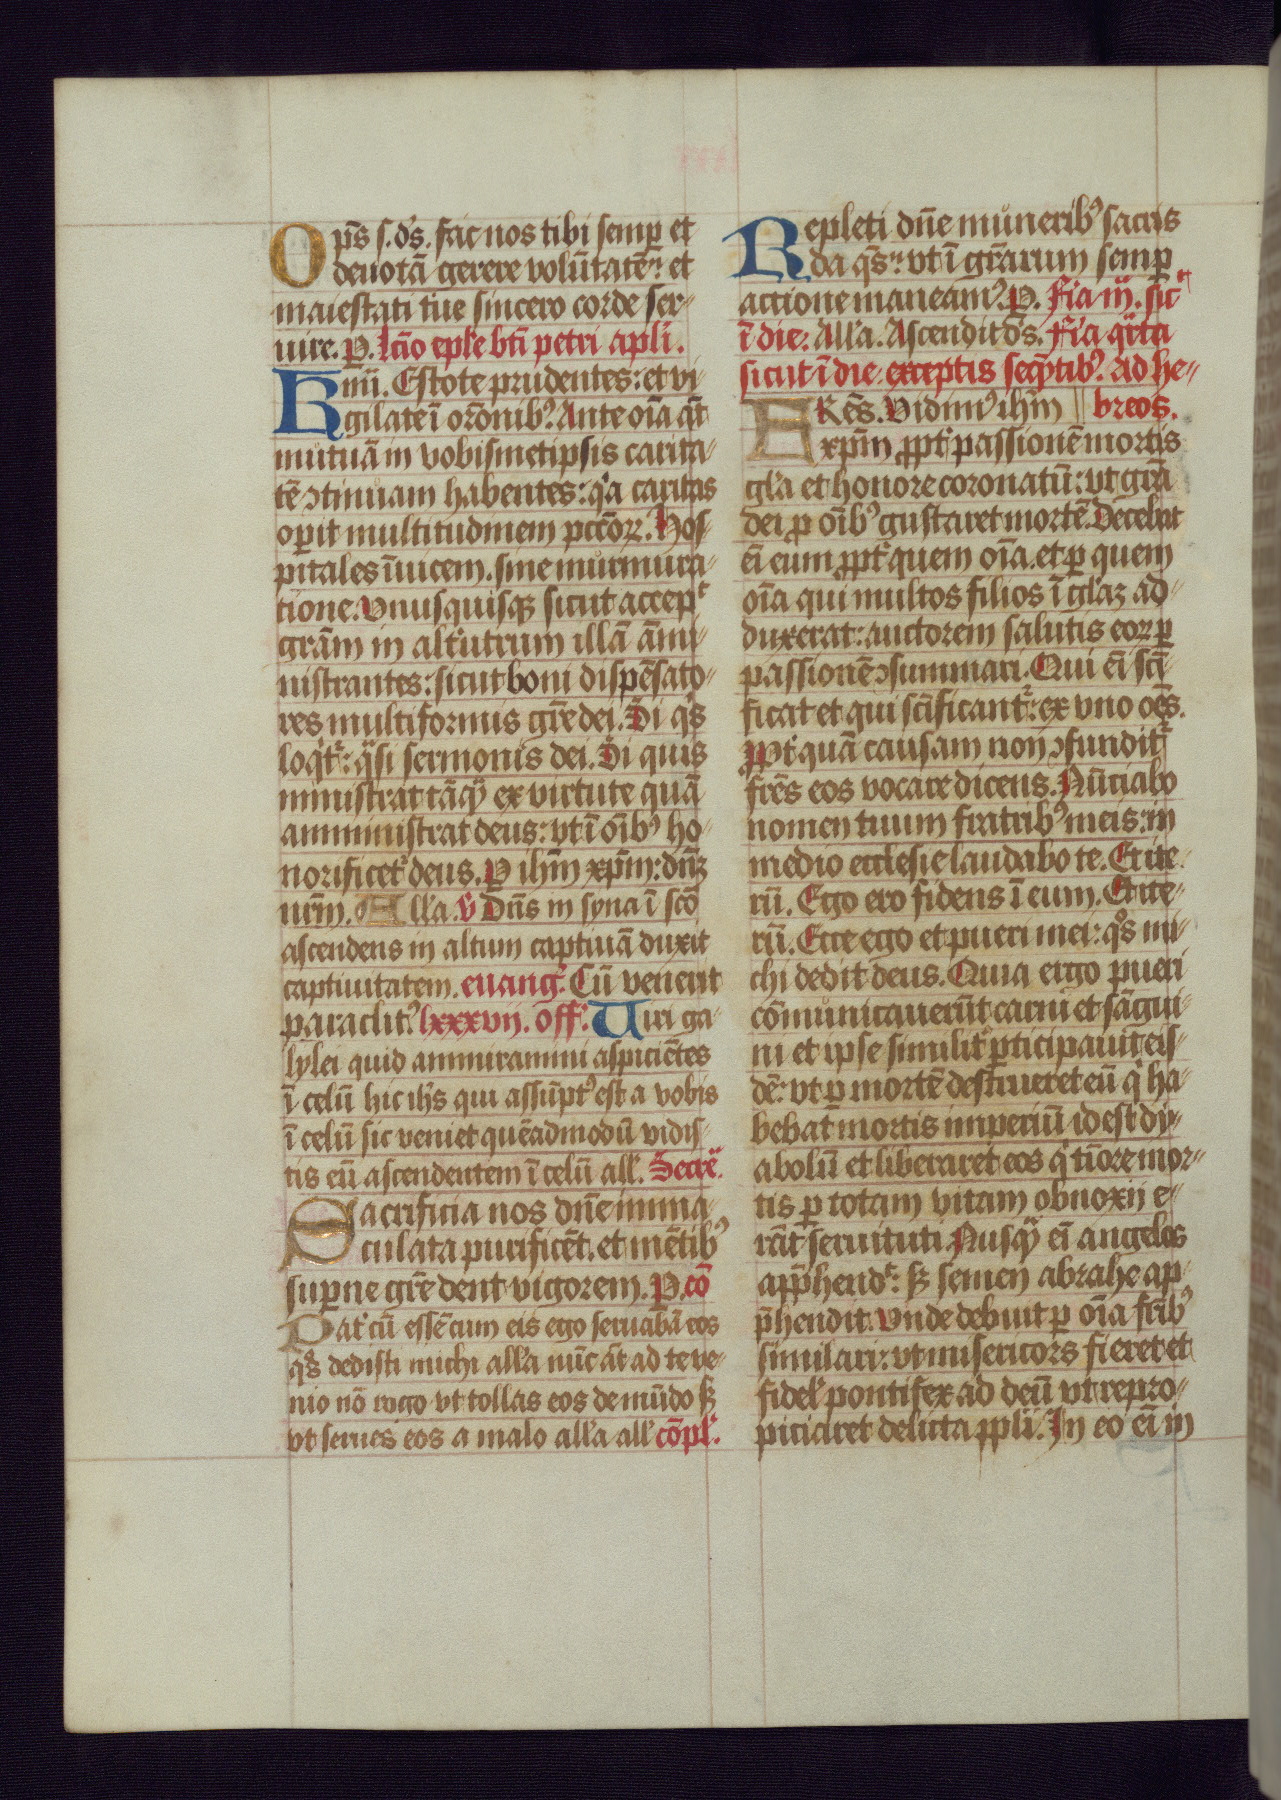 Op̄s s. ds̄. fac nos tibi semꝑ et
deuotā gerere volūtatē: et
maiestati tue sincero corde ser-
uire. P. lcō̄ eple bt̄i petri apl̄i.
Kmī. Estote prudentes: et vi-
gilate ī or̄onibꝰ. Ante oīa āt
mutuā in vobismetipsis carita-
tē ↄtinuam habentes: qͥa caritas
oꝑit multitudinem pcc̄oꝝ. Hos-
pitales īuicem. sine murmura-
tione. Vnusquisqꝫ sicut accepͭ
gr̄am in alt̓utrum illā ām̄i-
nistrantes: sicut boni dispēsato-
res multiformis gr̄e dei. Si qͥs
loqͥt̓: qͣsi sermones dei. Si quis
ministrat tāqͣ ex virtute quā
amministrat deus: vt ī oībꝰ ho-
norificet̓ deus. P ihm̄ xp̄m: dn̄ꝫ
nr̄m. All̓a. v̄ Dn̄s in syna ī sc̄o
ascendens in altum captiuā duxit
captiuitatem. euang̓. Cū venerit
paraclitꝰ lxxxvij. off̓. Uiri ga-
lylei quid ammiramini aspiciētes
ī celū hic ih̄s qui assūptꝰ est a vobis
ī celū sic veniet quēadmodū vidis-
tis eū ascendentem ī celū all̓. Secre͞.
Sacrificia nos dn̄e imma-
culata purificēt. et mētibꝰ
suꝑne gr̄e dent vigorem. P. cō
Pat̓ cū essē cum eis ego seruabā eos
qͦs dedisti michi all̓a nūc āt ad te ve-
nio nō rogo vt tollas eos de mūdo sꝫ
vt serues eos a malo all̓a all̓ cōpl̓.
Repleti dn̄e muneribꝰ sacris
da qs̄: vt ī gr̄arum semꝑ
actione maneamꝰ. P. Fīa iij. sic̓
ī die. All̓a. Ascendit ds̄. Fīa qͥrta
sicut ī die exceptis seqͥtibꝰ. Ad he-
breos.
FRēs. Vidimꝰ ihm̄
xp̄m ꝓpt̓ passionē mortis
gl̓a et honore coronatū: vt gr̄a
dei ꝓ oībꝰ gustaret mortē. Decebat
eī eum ꝓpt̓ quem oīa. et ꝑ quem
oīa qui multos filios ī gl̓aꝫ ad-
duxerat: auctorem salutis eoꝝ ꝑ
passionē ↄsummari. Qui eī sc̄i-
ficat et qui sc̄ificant̓: ex vno oēs.
Ꝓpt̓ quā causam non ↄfundit̓
fr̄es eos vocare dicens. Nūciabo
nomen tuum fratribꝰ meis: in
medio ecclesie laudabo te. Et ite-
rū. Ego ero fidens ī eum. Et ite-
rū. Ecce ego et pueri mei: qͦs mi-
chi dedit deus. Quia ergo pueri
cōmunicauerūt carni et sāgui-
ni et ipse similit̓ ꝑticipauit eis-
dē: vt ꝑ mortē destrueret eū qͥ ha-
bebat mortis imperiū id est dy-
abolū et liberaret eos qͥ timore mor-
tis ꝑ totam vitam obnoxij e-
rāt seruituti. Nusqͣ eī angelos
app̄hendͭ: sꝫ semen abrahe ap-
p̄hendit. Vnde debuit ꝑ oīa fr̄ibꝰ
similari: vt misericors fieret et
fidel̓ pontifex ad deū vt repro-
piciaret delicta ppl̓i. In eo eī in